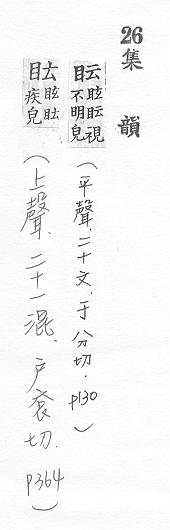 26 集 韻
眃 眩眃視不明皃 (平聲.二十文.于分切.P130)
眃 眩眃疾皃 (上聲.二十一混.户袞切.P364)